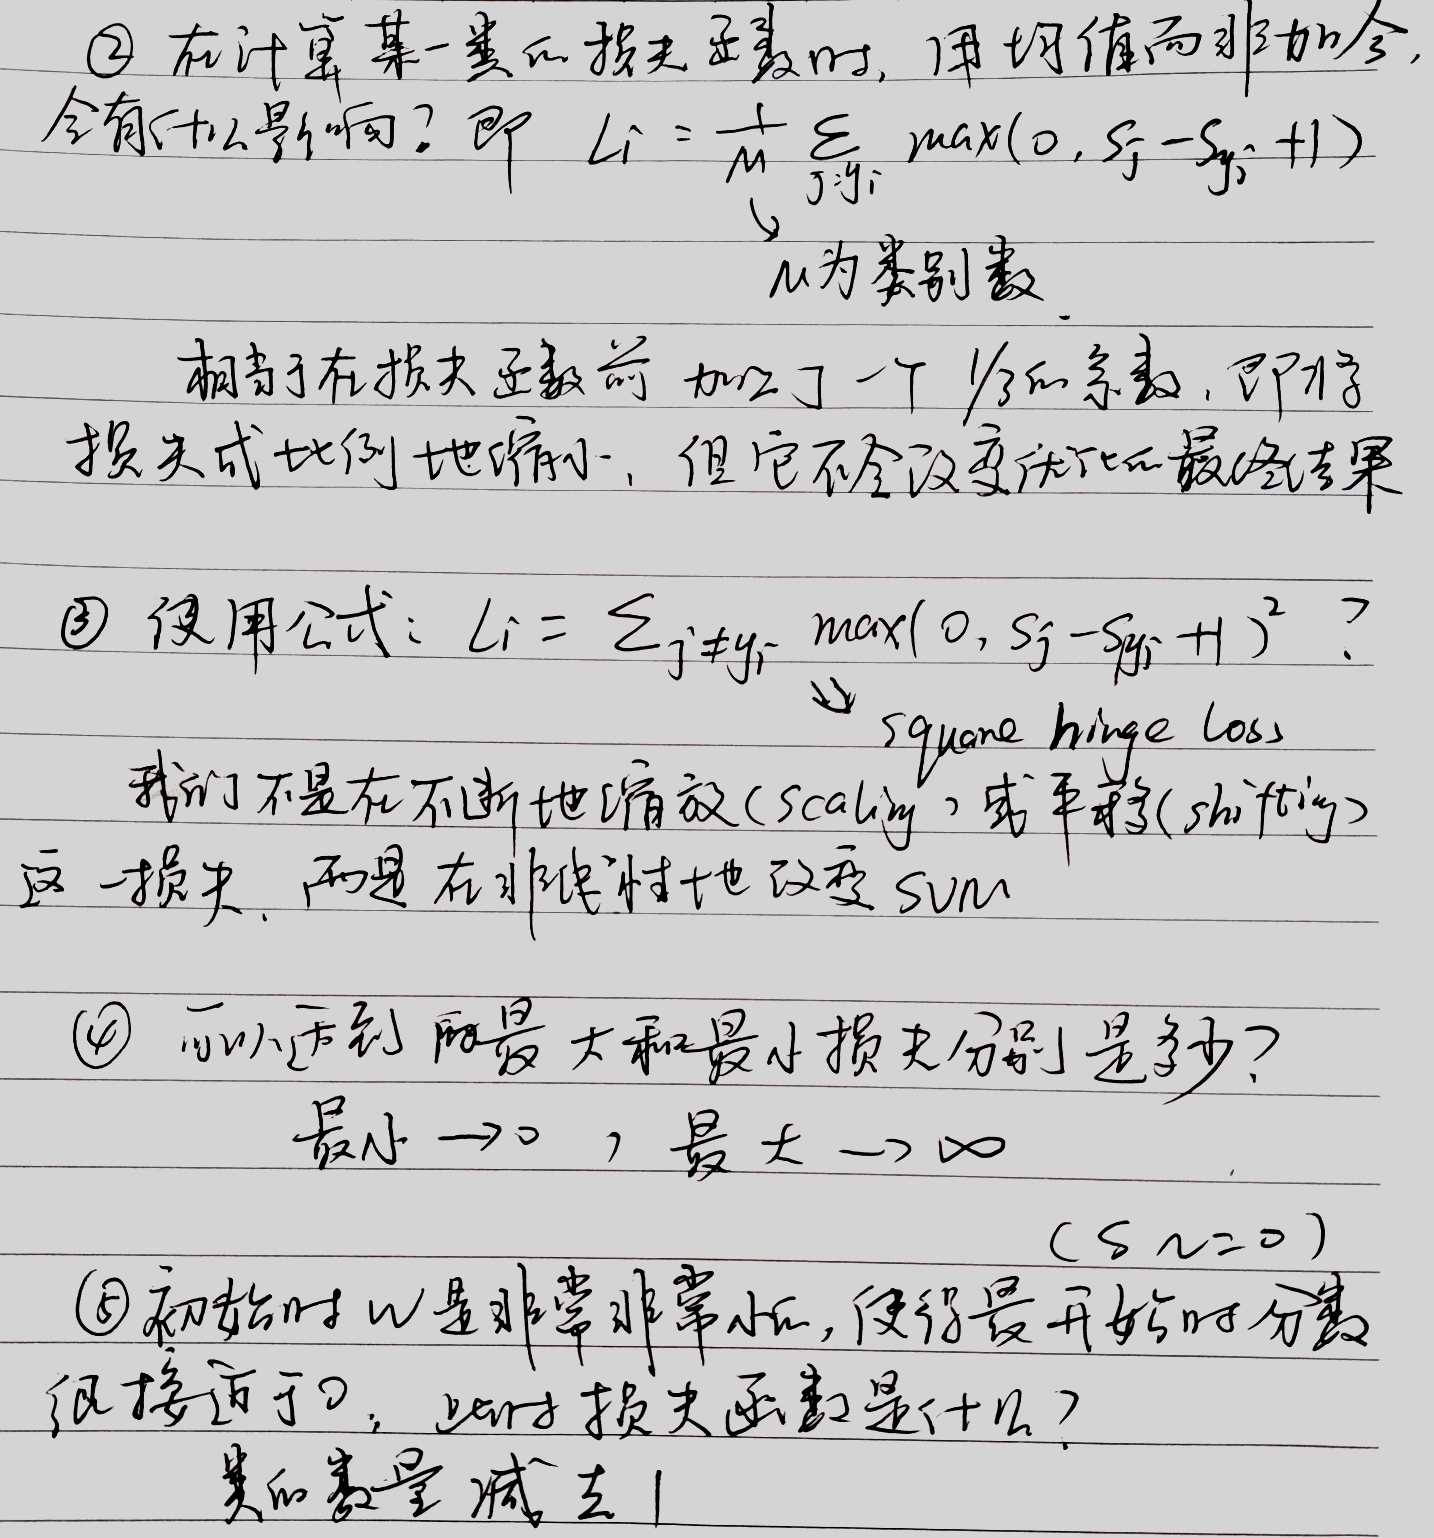 ② 在计算某一类的损失函数时，用均值而非加合，
会有什么影响？即 Li = 1/M Σ j≠yi max(0, Sj - Syi + 1)
↘
M为类别数
相当于在损失函数前加上了一个 1/3的系数，即将
损失成比例地缩小，但它不会改变优化的最终结果
③ 使用公式：Li = Σ j≠yi max(0, Sj - Syi + 1)² ?
↘ square hinge loss
我们不是在不断地缩放(scaling)或平移(shifting)
这一损失，而是在非线性地改变 SVM
④ 可以达到的最大和最小损失分别是多少？
最小 → 0 ，最大 → ∞
(S ≈ 0)
⑤ 初始时W是非常非常小的，使得最开始时分数
很接近于0，此时损失函数是什么？
类的数量减去1